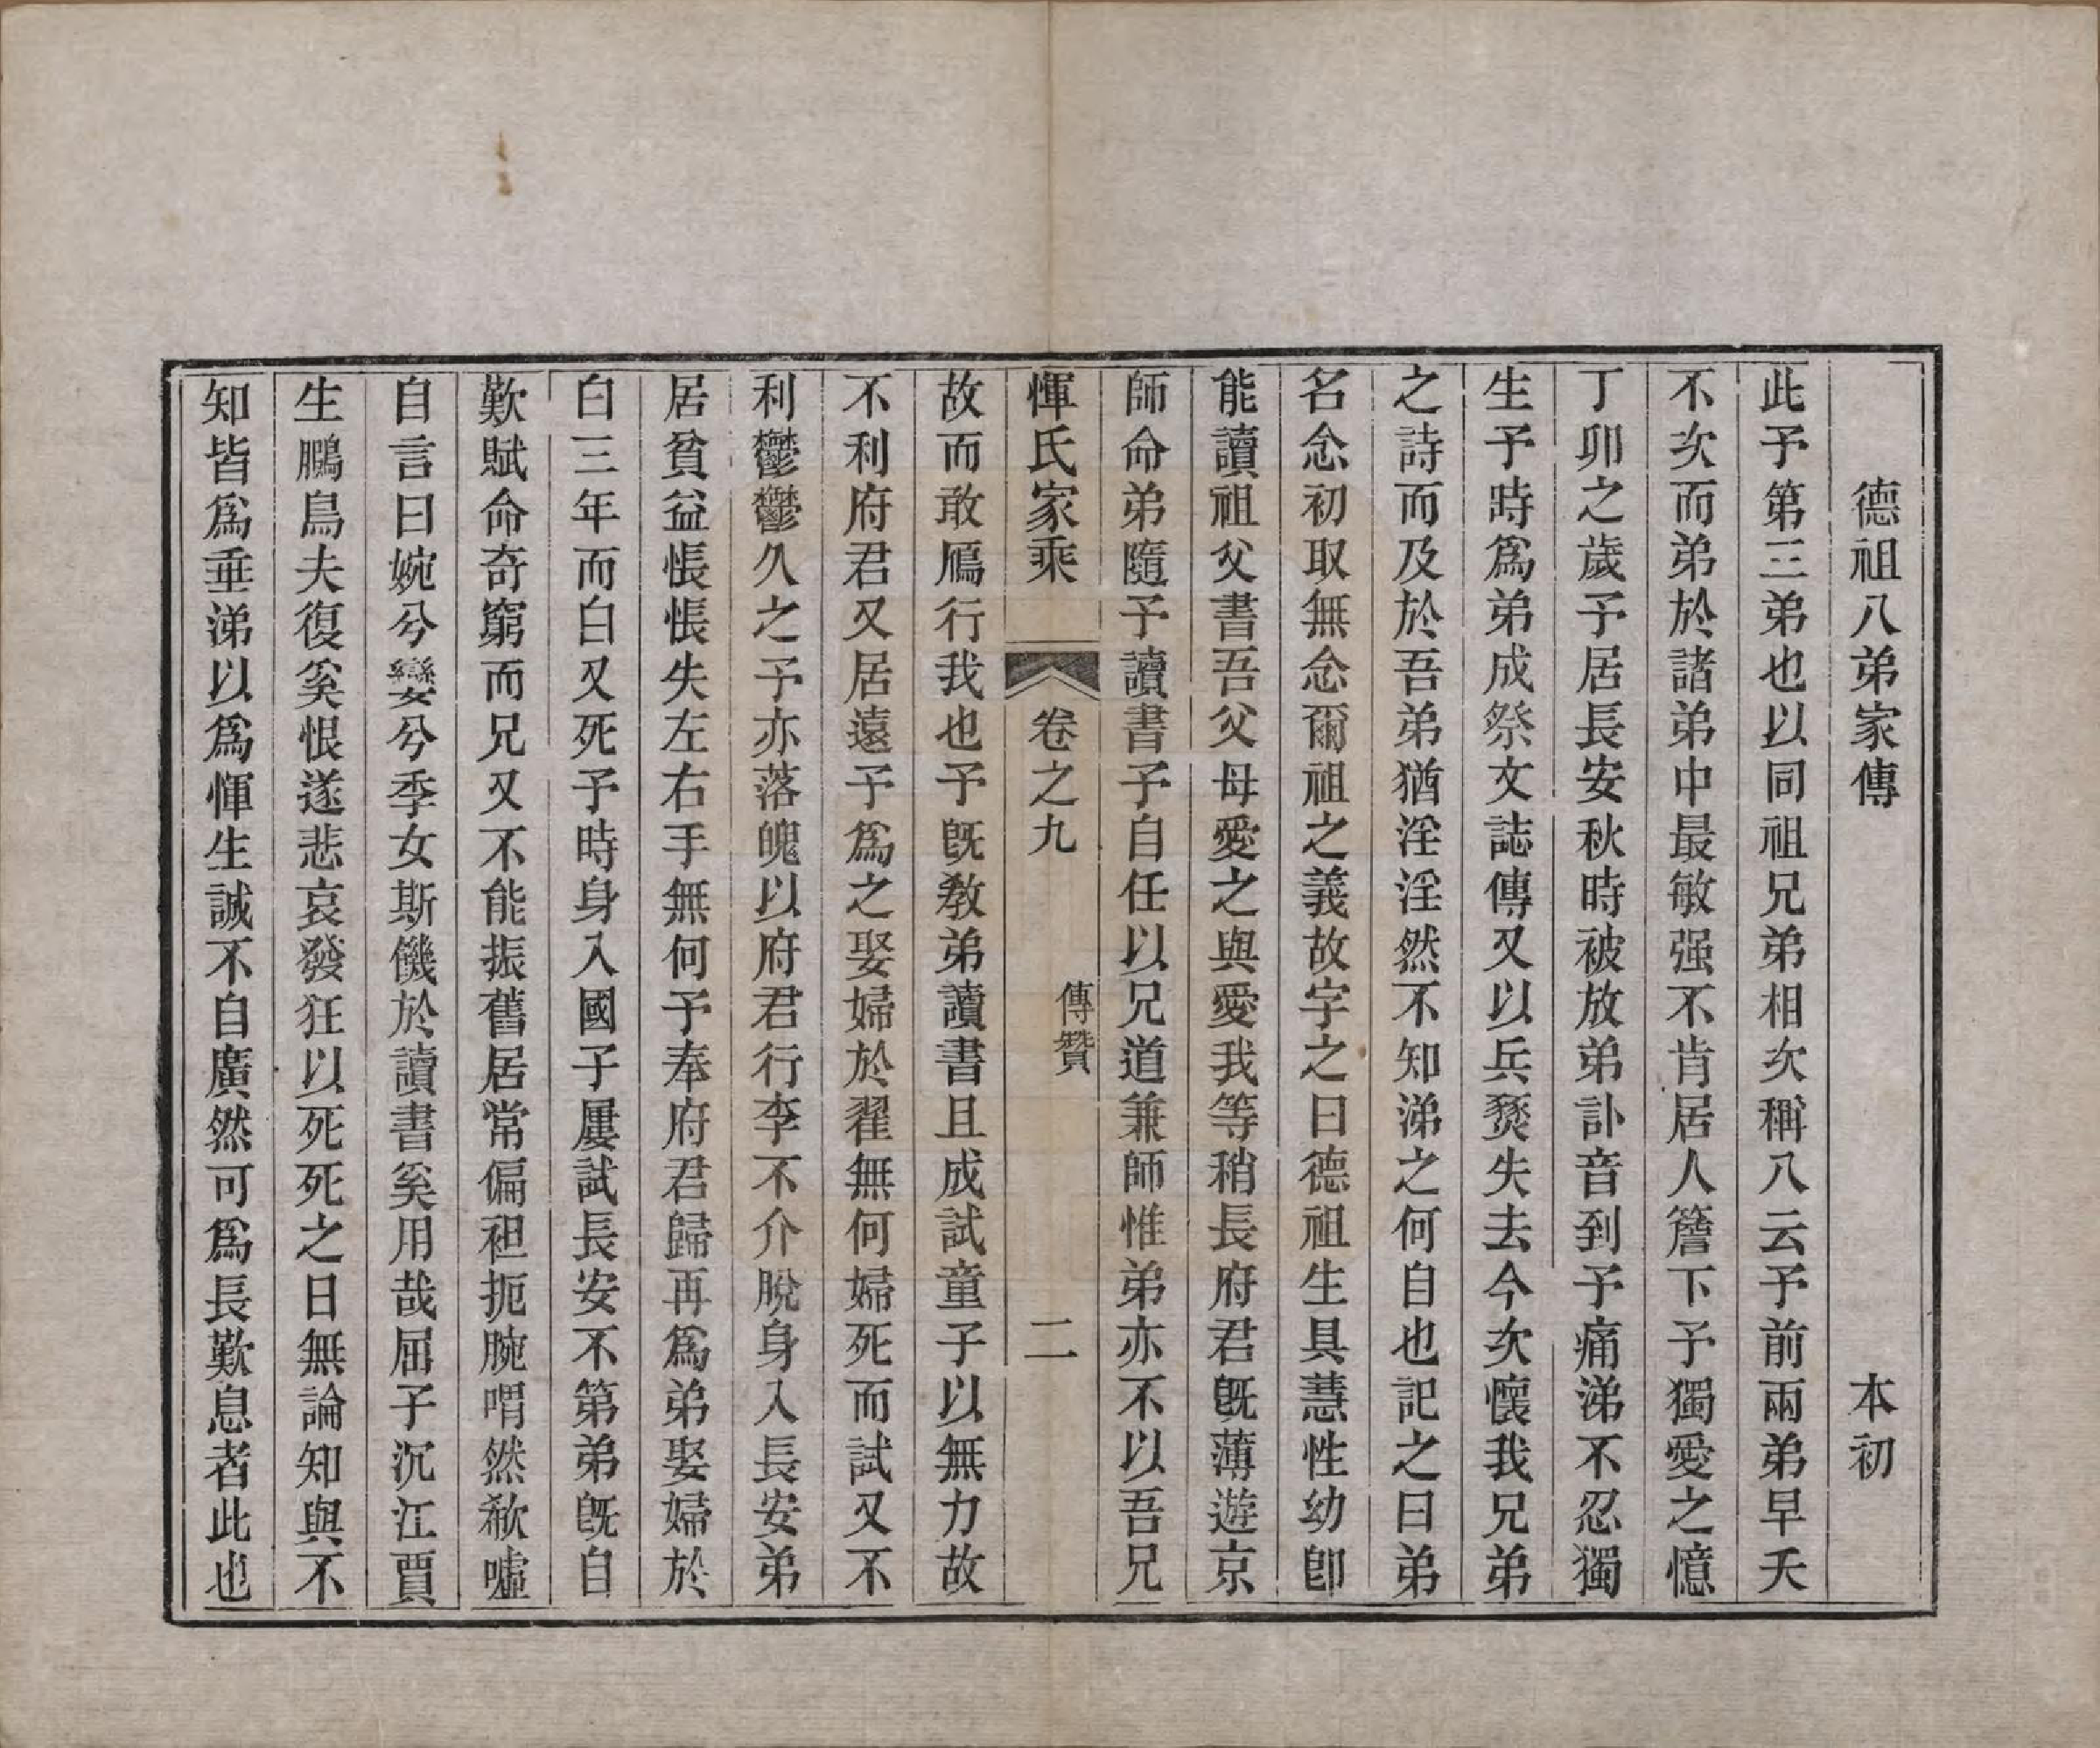 德祖八弟家傳　　　本初
此予第三弟也以同祖兄弟相次稱八云予前兩弟早夭
不次而弟於諸弟中最敏强不肯居人簷下予獨愛之憶
丁卯之歲予居長安秋時被放弟訃音到予痛涕不忍獨
生予時爲弟成祭文誌傳又以兵燹失去今次懷我兄弟
之詩而及於吾弟猶淫淫然不知涕之何自也記之曰弟
名念初取無念爾祖之義故字之曰德祖生具慧性幼卽
能讀祖父書吾父母愛之與愛我等稍長府君旣薄遊京
師命弟隨予讀書予自任以兄道兼師惟弟亦不以吾兄
惲氏家乘　卷之九　傳贊　二
故而敢鴈行我也予旣敎弟讀書且成試童子以無力故
不利府君又居遠予爲之娶婦於翟無何婦死而試又不
利鬱鬱久之予亦落魄以府君行李不介脫身入長安弟
居貧益悵悵失左右手無何予奉府君歸再爲弟娶婦於
白三年而白又死予時身入國子屢試長安不第弟旣自
歎賦命奇窮而兄又不能振舊居常偏袒扼腕喟然欷噓
自言曰婉兮孌兮季女斯饑於讀書奚用哉屈子沉江賈
生鵩鳥夫復奚恨遂悲哀發狂以死死之日無論知與不
知皆爲垂涕以爲惲生誠不自廣然可爲長歎息者此也